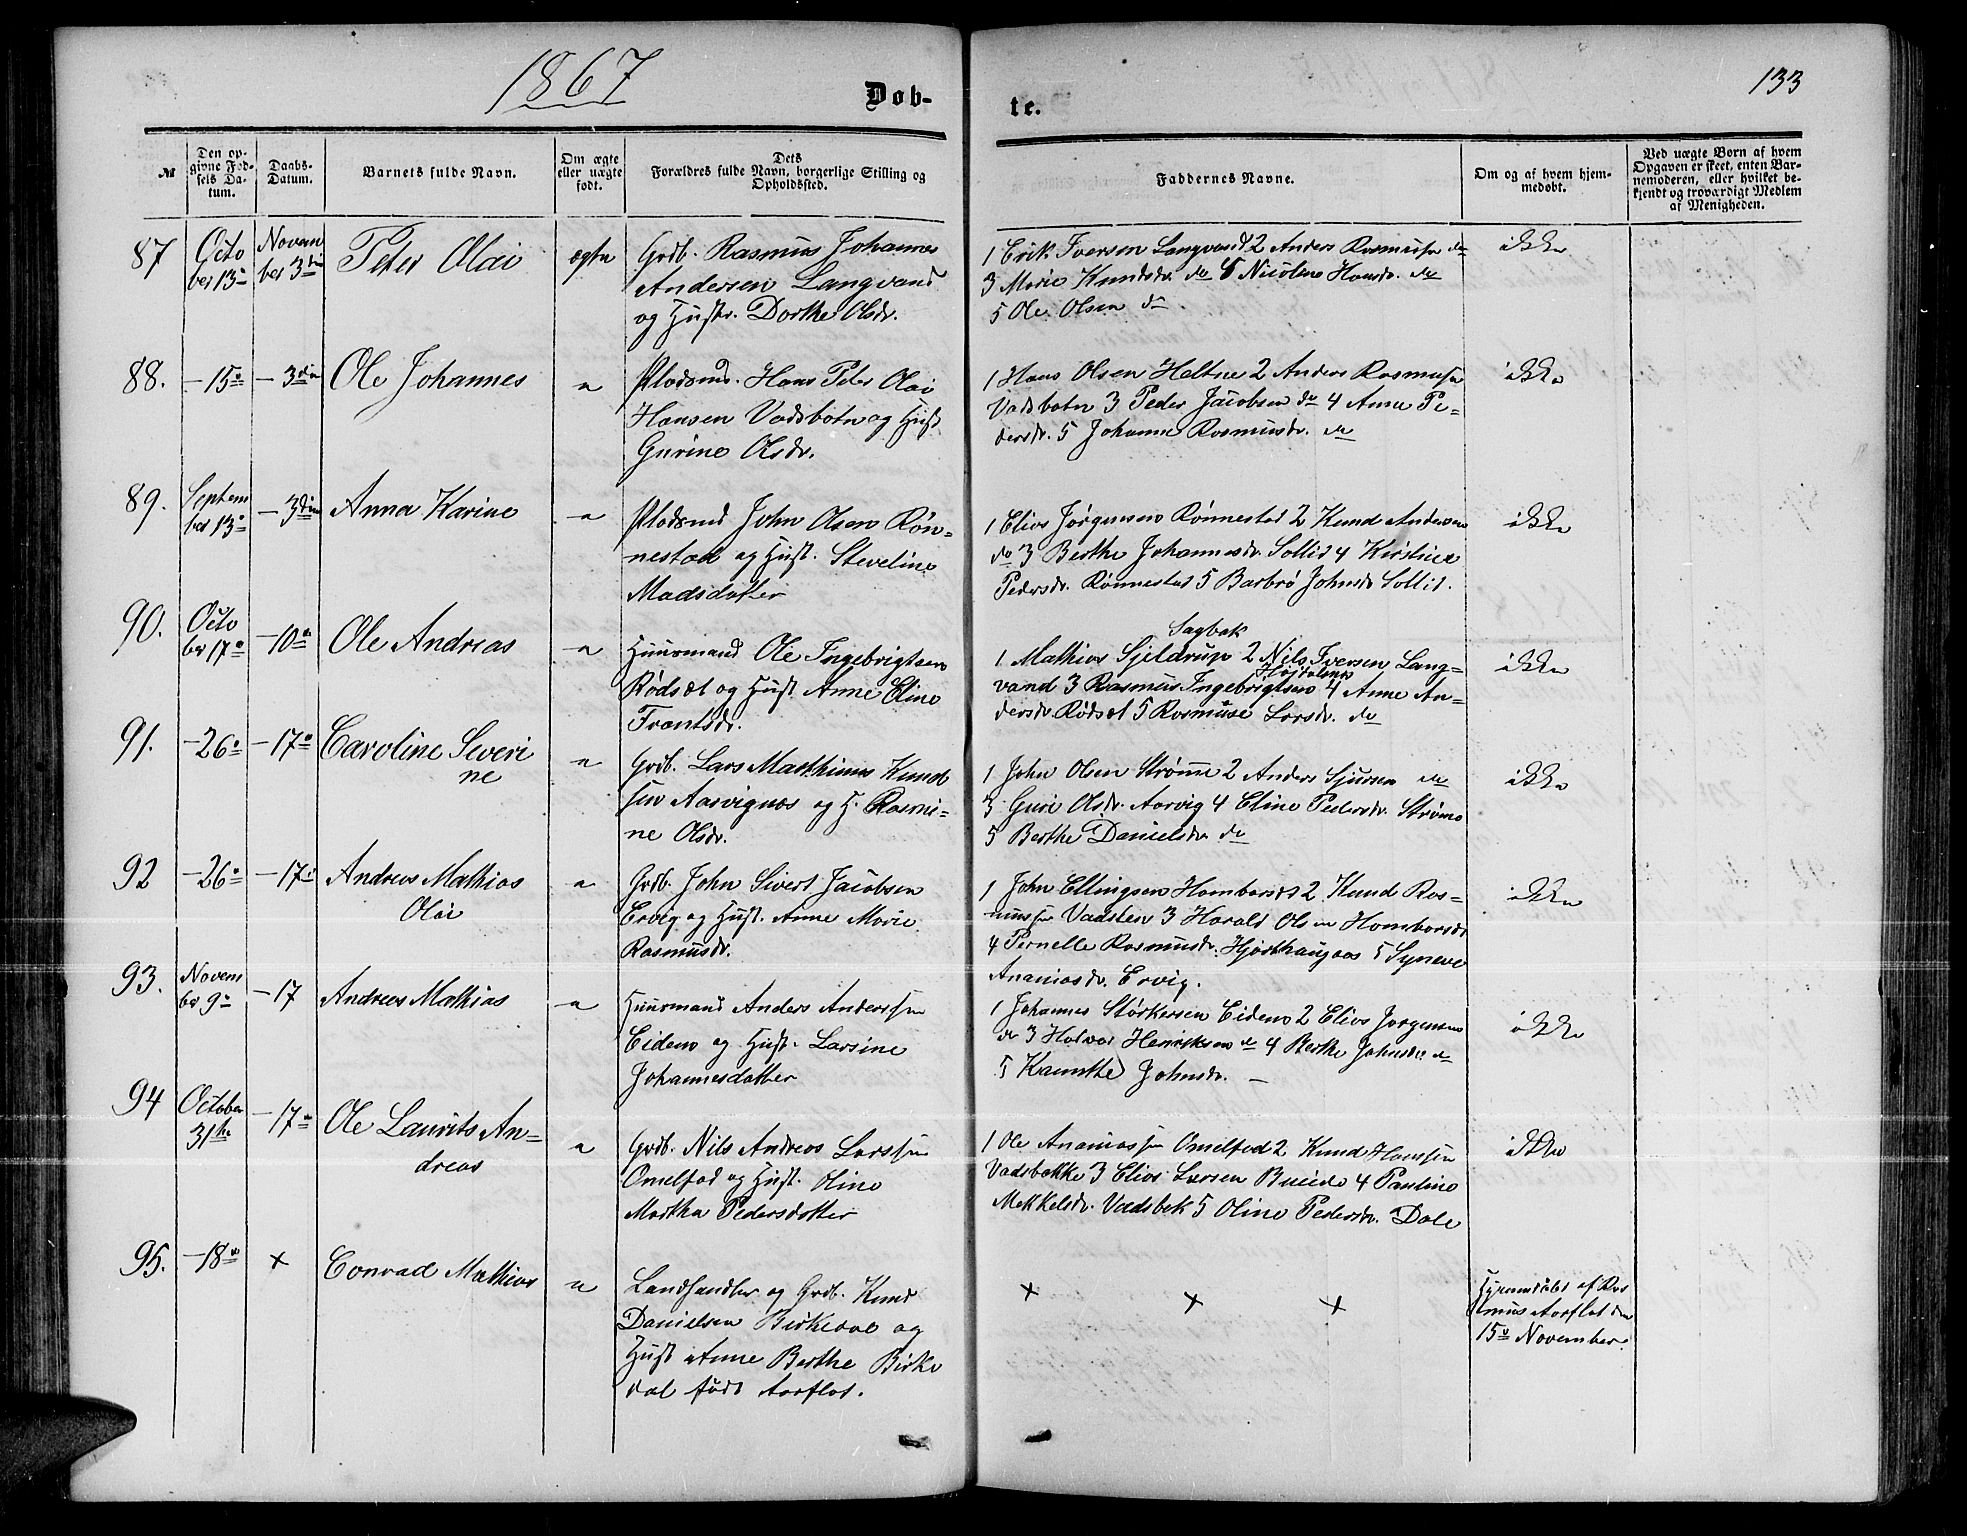 1867
133
Døb-
te.
№
Den op-
givne Fød-
sels Da-
tum.
Daabs-
Datum.
Barnets fulde Navn.
Om ægte
eller uægte
født.
Dets
Forældres fulde Navn, borgerlige Stilling og
Opholdssted.
Faddernes Navne.
Om og af hvem hjem-
medøbt.
Ved uægte Børn af hvem
Opgaven er skeet, enten Bar-
nemoderen, eller hvilket be-
kjendt og troværdigt Medlem
af Menigheden.
87
Octo
ber 13
Novem
ber 3die
Peter Olai
ægte
Grdb. Rasmus Johannes
Andersen Langvand
og Hustr. Dorthe Olsdr.
1 Erik Iversen Langvand 2 Anders Rasmussen do
3 Marie Knudsdr. do 4 Nicoline Hansdr. do
5 Ole Olsen do
ikke
88.
- 15
- 3die
Ole Johannes
"
Pladsmd. Hans Peter Olai
Hansen Vadsbotn og Hust
Gurine Olsdr.
1 Hans Olsen Heltne 2 Anders Rasmussen
Vadsbotn 3 Peder Jacobsen do 4 Anne Pe-
dersdr. 5 Johanne Rasmusdr. do
ikke
89.
Septem
ber 13
- 3die
Anna Karine
"
Pladsmd John Olsen Røn-
nestad og Hust. Steveline
Madsdatter
1 Elias Jørgensen Rønnestad 2 Knud Andersen
do 3 Berthe Johannesdr. Sollid 4 Kirstine
Pedersdr. Rønnestad 5 Barbrø Johnsdr Sollid.
ikke
90.
Octo
ber 17
- 10
Ole Andreas
"
Huusmand Ole Ingebrigtsen
Rødset og Hust Anne Eline
Frantsdr.
Sagbak
1 Mathias Sjeldrup 2 Nils Iversen Lang-
vand 3 Rasmus Ingebrigtsen 4 Anne An-
dersdr. Rødset 5 Rasmuse Larsdr. do
ikke
91.
- 26
- 17
Caroline Severi
ne
"
Grdb. Lars Mathinus Knud
sen Aarvignæs og H. Rasmi-
ne Olsdr.
1 John Olsen Strømme 2 Anders Sjursen do
3 Guri Olsdr. Aarvig 4 Eline Pedersdr. Strømme
5 Berthe Danielsdr. do
ikke
92
- 26
- 17
Andreas Mathias
Olai
"
Grdb. John Sivert Jacobsen
Ervig og Hust. Anne Marie
Rasmusdr.
1 John Ellingsen Homborset 2 Knud Ras-
mussen Vadsten 3 Harald Olsen Homborset
4 Pernelle Rasmusdr. Hjorthaugaas 5 Synneve
Ananiasdr. Ervig.
ikke
93.
Novem
ber 9
- 17
Andreas Mathias
"
Huusmand Anders Anderssen
Eidem og Hust. Larsine
Johannesdatter
1 Johannes Størkersen Eidem 2 Elias Jørgensen
do 3 Halvor Henriksen do 4 Berthe Johnsdr. do
5 Johnsdr. -
ikke
94
October
31te
- 17
Ole Laurits An-
dreas
"
Grdb. Nils Andreas Larssen
Omelfod og Hust. Oline
Martha Pedersdatter
1 Ole Ananiassen Omelfod 2 Knud Hanssen
Vadsbakke 3 Elias Larsen 4 Pauline
Mekkelsdr. Vadsbek 5 Oline Pedersdr. Dale
ikke
95.
- 18
+
Conrad Mathias
"
Landhandler og Grdb. Knud
Danielsen Birkedal og
Hust Anne Berthe Birke
dal født Aarflot.
+
+
+
Hjemmedøbt af Ras
mus Aarflot den
15 November.